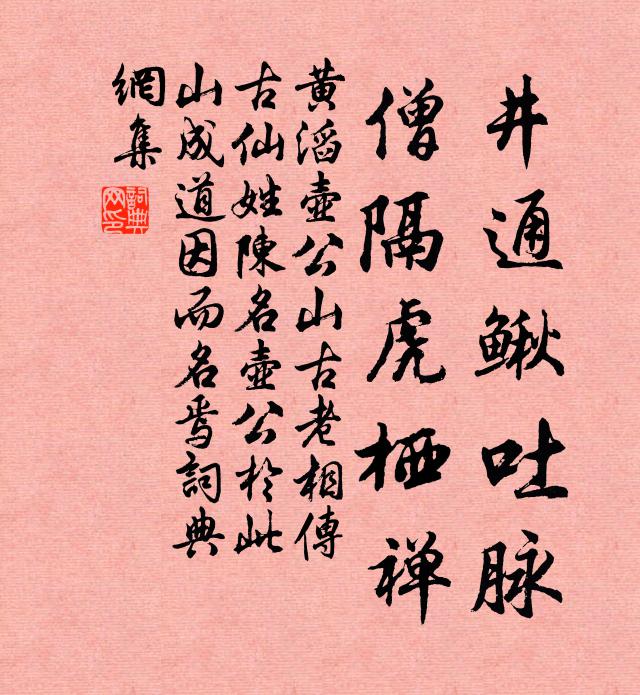 井通鰍吐脉
僧隔虎栖禅
黄滔壺公山古老相傳
古仙姓陳名壺公於此
山成道因而名焉詞典
網集
詞典
网印